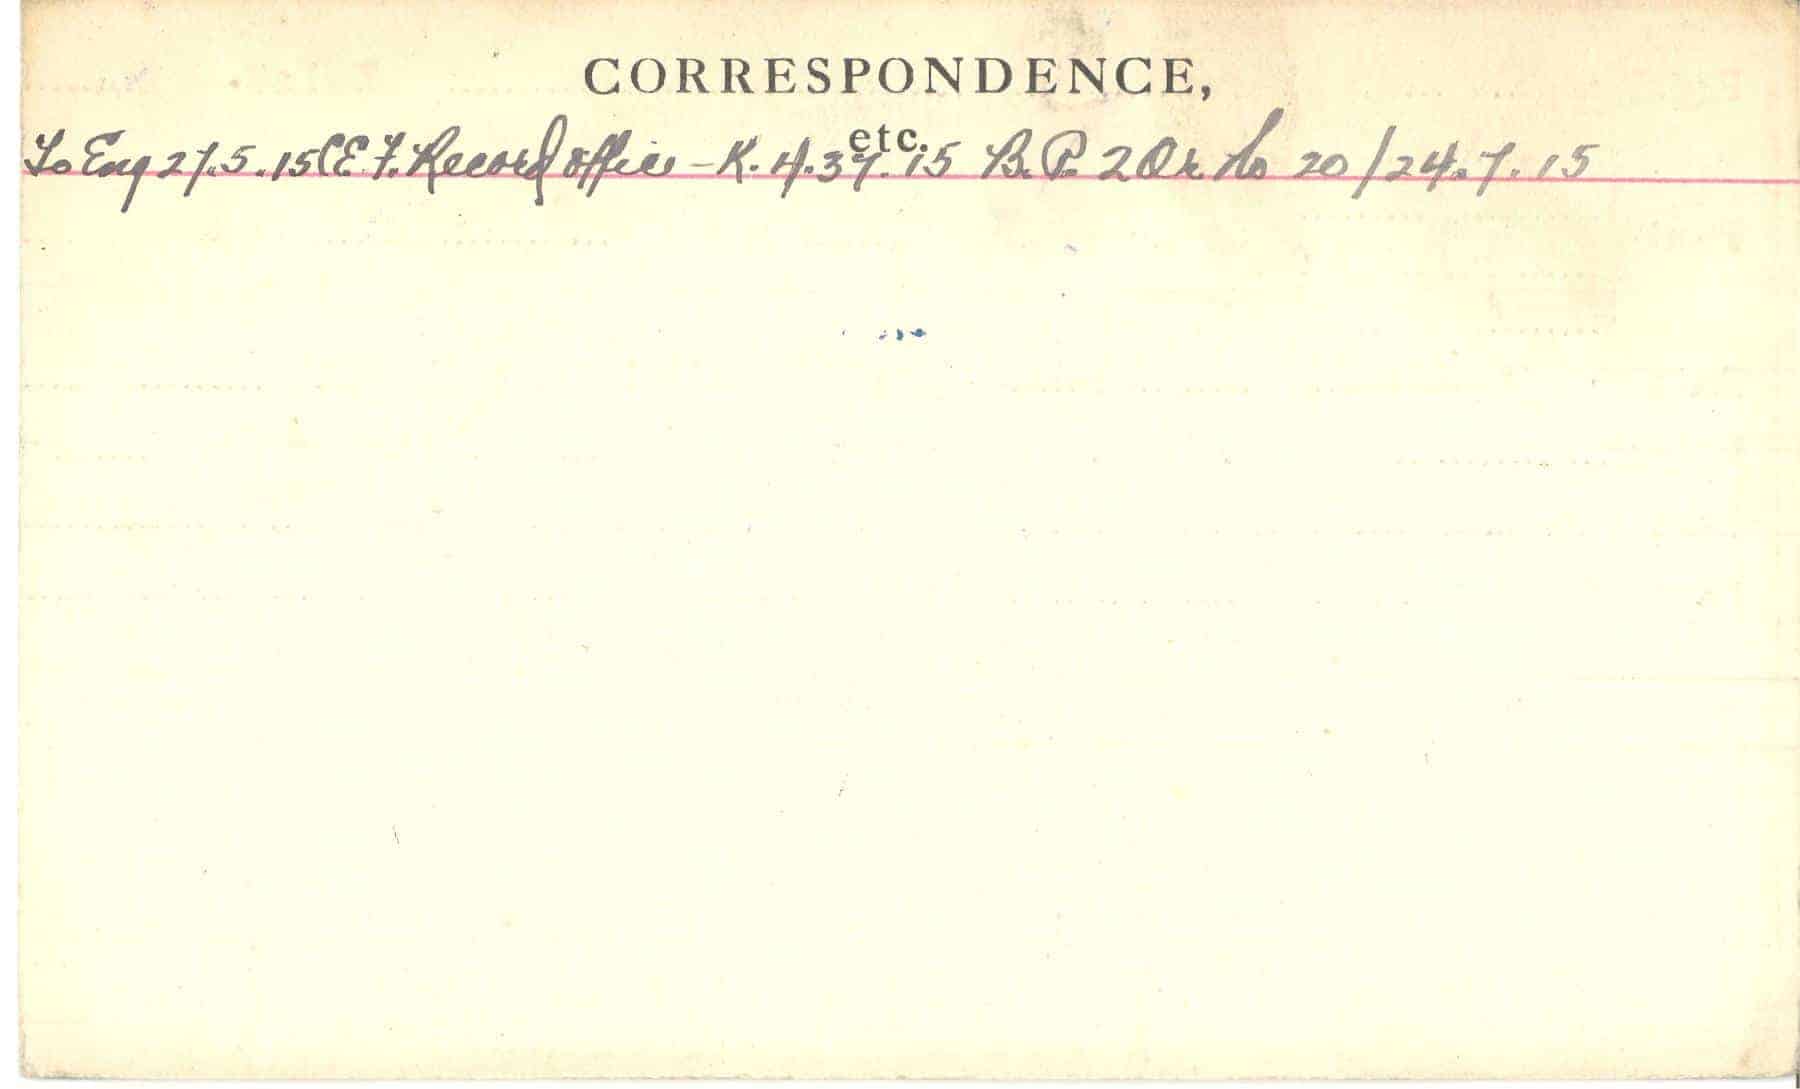 CORRESPONDENCE,
etc.
To Eng 27.5.15 C.E.F. Record office – K. 4.37.15 B.P. 2 Or No 20/24.7.15